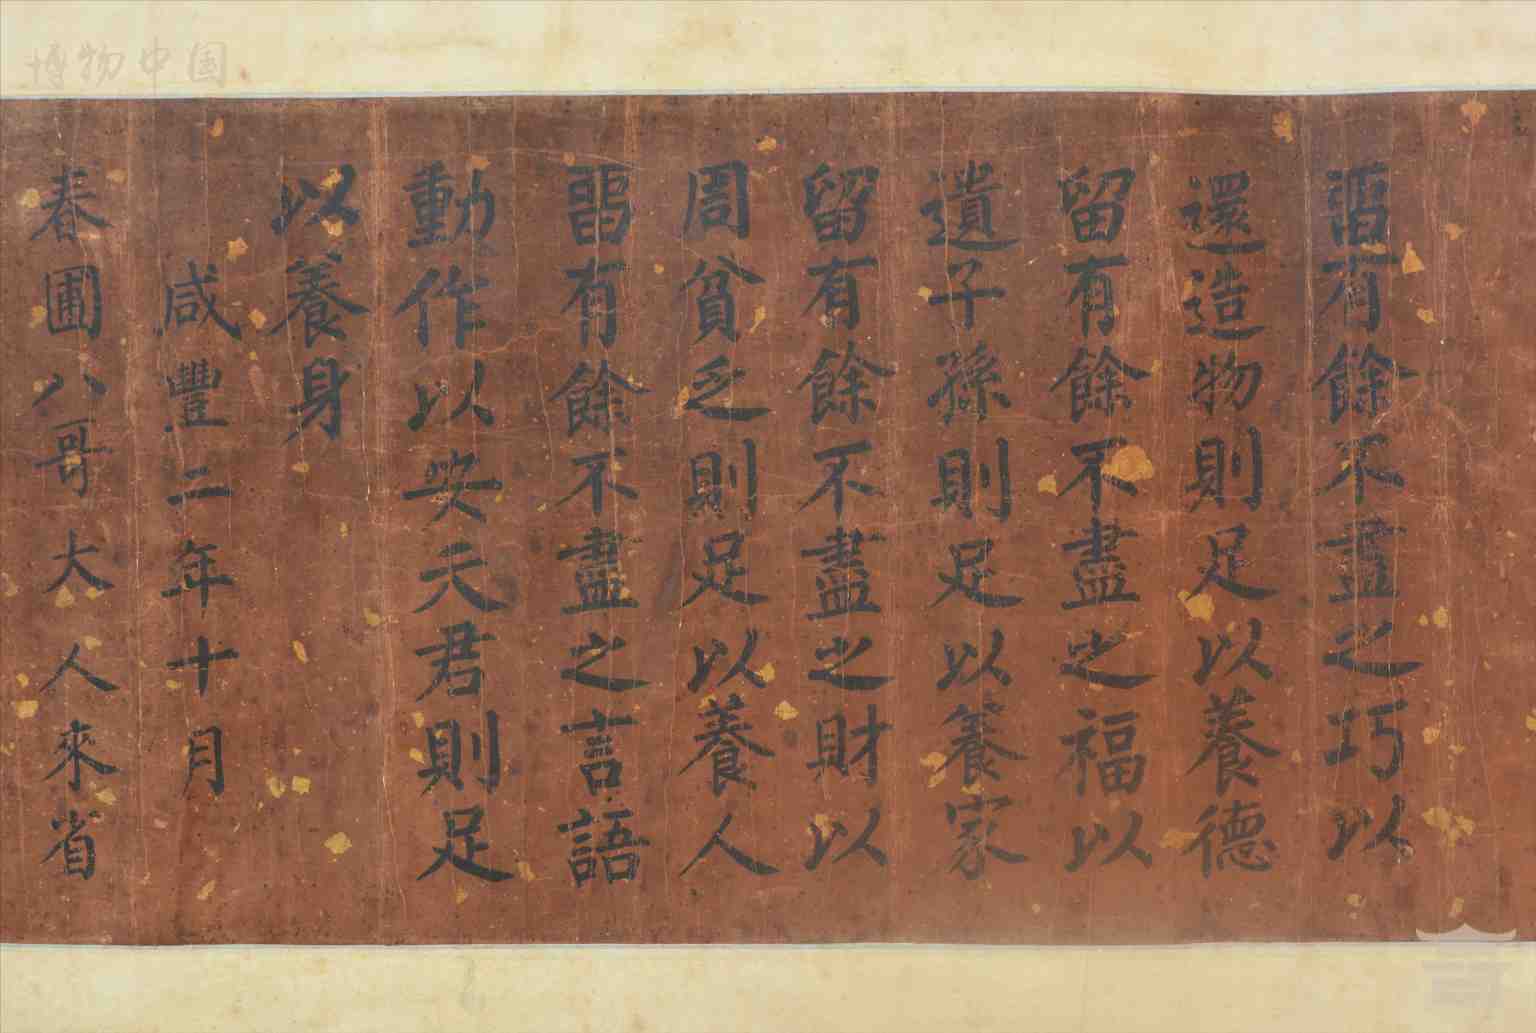 留有餘不盡之巧以
還造物則足以養德
留有餘不盡之福以
遺子孫則足以養家
留有餘不盡之財以
周貧乏則足以養人
留有餘不盡之言語
動作以安天君則足
以養身
咸豐二年十月
春圃八哥大人來省
博物中国